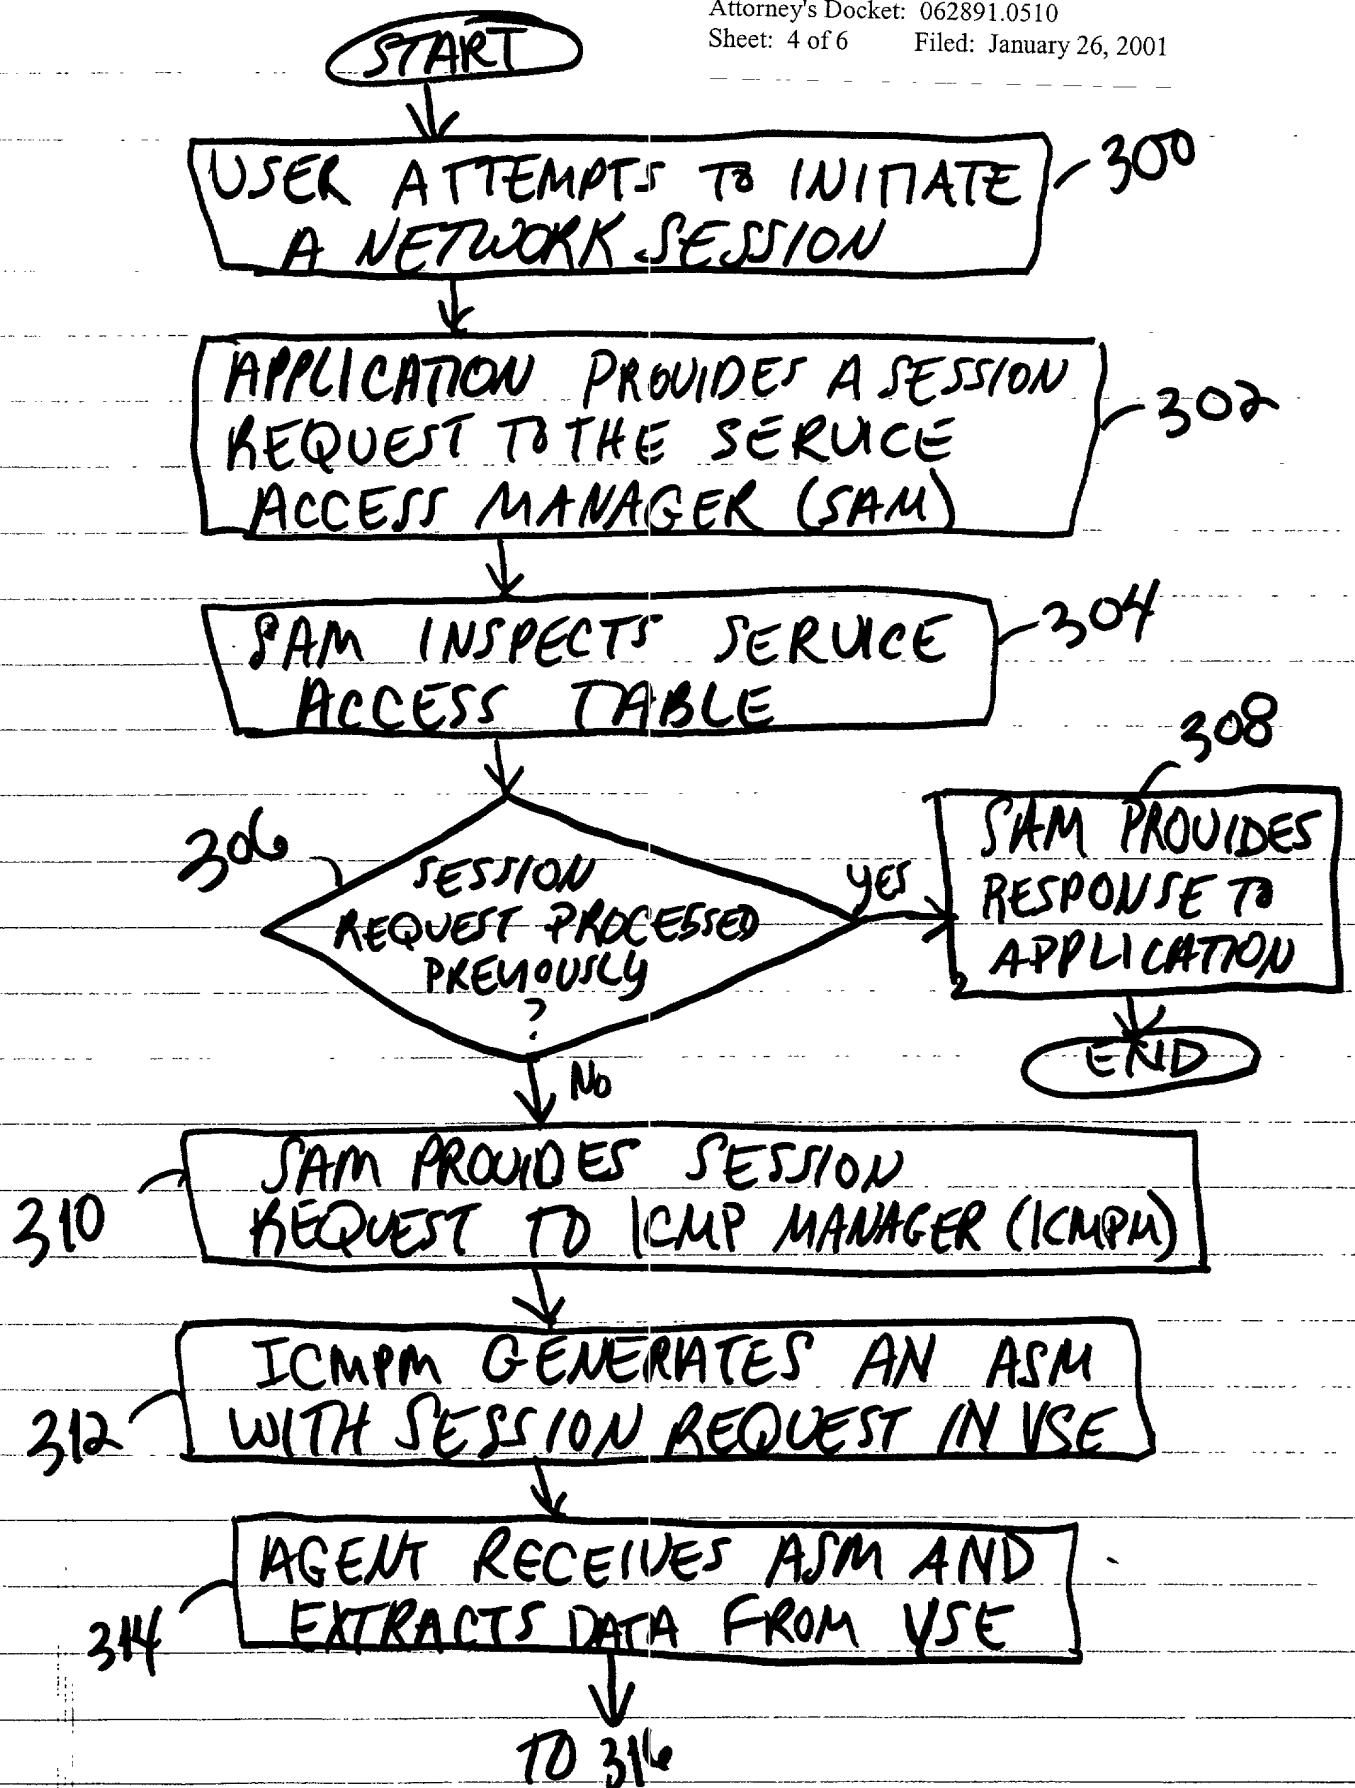 Attorney's Docket: 062891.0510
Sheet: 4 of 6 Filed: January 26, 2001
START
USER ATTEMPTS TO INITIATE
A NETWORK SESSION
300
APPLICATION PROVIDES A SESSION
REQUEST TO THE SERVICE
ACCESS MANAGER (SAM)
302
SAM INSPECTS SERVICE
ACCESS TABLE
304
306
SESSION
REQUEST PROCESSED
PREVIOUSLY
?
YES
308
SAM PROVIDES
RESPONSE TO
APPLICATION
END
NO
310
SAM PROVIDES SESSION
REQUEST TO ICMP MANAGER (ICMPM)
312
ICMPM GENERATES AN ASM
WITH SESSION REQUEST IN VSE
314
AGENT RECEIVES ASM AND
EXTRACTS DATA FROM VSE
TO 316